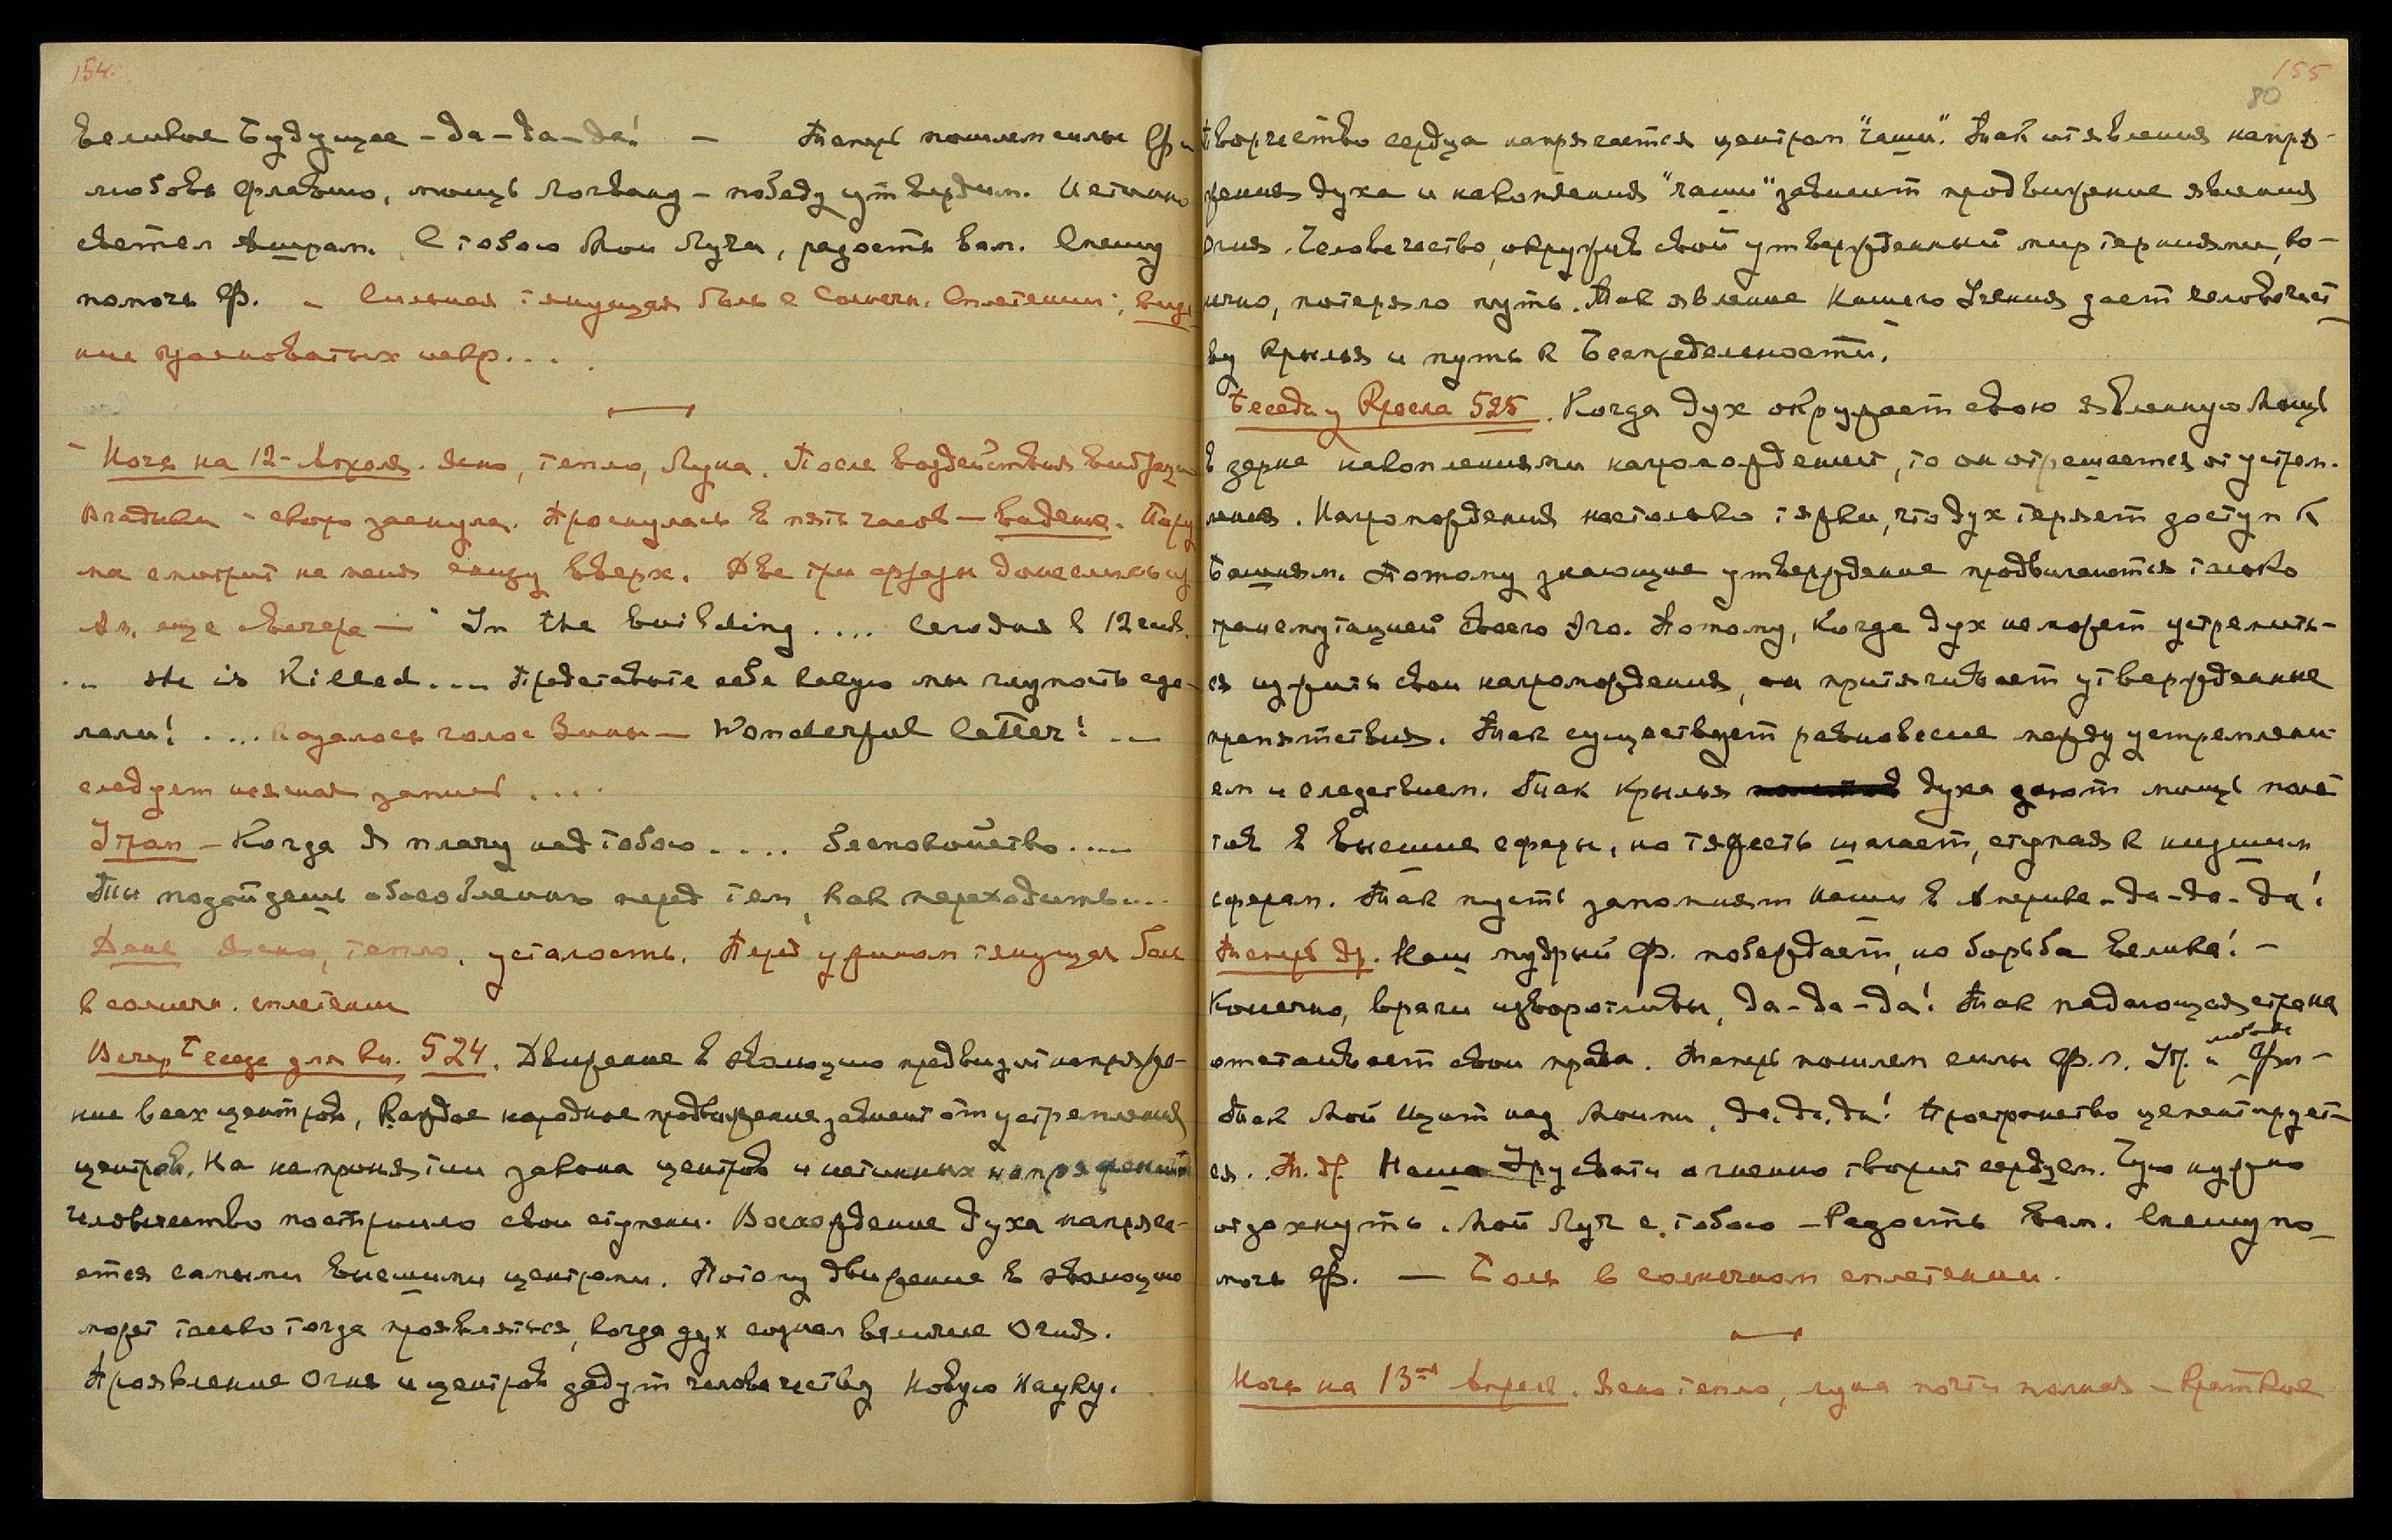 154.
Великое Будущее – да – да – да! – Теперь пошлем силы Ф. и
любовь Флавию, мощь Логвану – победу утвердим. Истинно
светел Амрам. С тобою Мои Лучи, радость вам. Спешу
помочь Ф. – Сильная тянущая боль в Солнечн. Сплетении;
ние искр....
Ночь на 12-Апреля. Ясно, тепло, Луна. После воздействия вибрации
Владыки – скоро заснула. Проснулась в пять часов – видение.
на смотрит на меня снизу вверх. Две три фразы донеслись из
Ам. еще с вечера – In the building.... Сегодня в 12
... He is Killed.... Представьте себе какую мы глупость сде-
лали! .... Казалось голос Зины – Wonderful letter! ...
следует неясная запись ....
Утром – Когда Я плачу над тобою .... беспокойство ....
Ты подойдешь обособленно перед тем, как переходить...
День Ясно, тепло, усталость. Перед ужином тянущая боль
в солнечн. сплетении
Вечер Беседа для кн. 524. Движение в эволюцию предвидит напряже-
ние всех центров, Каждое народное продвижение зависит от устремления
центров. На непринятии закона центров и истинных напряжений
человечество построило свои ступени. Восхождение духа напряга-
ется самыми высшими центрами. Потому движение в эволюцию
может только тогда проявляться, когда дух осознал величие Огня.
Проявление Огня и центров дадут человечеству Новую Науку.
155
80
Творчество сердца напрягается центром "чаши". Так от явления напря-
жения духа и накопления "чаши" зависит продвижение явления
огня. Человечество, окружив свой утвержденный мир терниями, ко-
нечно, потеряло путь. Так явление Нашего Учения дает человечест
ву крылья и путь к Беспредельности.
Беседа у Кресла 525. Когда дух окружает свою явленную Мощь
в зерне накоплениями нагромождений, то он отрешается от устрем-
ления. Нагромождения настолько тяжки, что дух теряет доступ к
Башням. Потому знающие утверждение продвигаются только
трансмутацией своего Эго. Потому, когда дух не может устремить-
ся изжить свои нагромождения, он притягивает утвержденные
препятствия. Так существует равновесие между устремлени-
ем и следствием. Так крылья духа дают мощь поле
тов в высшие сферы, но тяжесть шагает, ступая к низшим
сферам. Так пусть запомнят наши в Америке – да – да – да!
Теперь др. Наш мудрый Ф. побеждает, но борьба велика! –
Конечно, враги изворотливы, да – да – да! Так падающая страна
отстаивает свои права. Теперь пошлем силы Ф. л. Ур. и любовь Фл –
Так Мой Щит над Моими, да, да, да! Пространство цементирует-
ся. Т. др. Наша Урусвати огненно творит сердцем. Чую нужно
отдохнуть. Мой Луч с тобою – Радость вам. Спешу по-
мочь Ф. – Боль в солнечном сплетении.
Ночь на 13ое Апреля. Ясно тепло, луна почти полная – Краткое